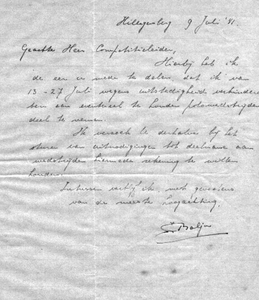 Hillegersberg 9 Juli '31.
Geachte Heer Competitieleider,
Hierbij heb ik
de eer u mede te delen, dat ik van
13-27 Juli wegens uitstedigheid verhinderd
ben aan eventueel te houden
deel te nemen.
Ik verzoek U derhalve bij het
sturen van uitnodigingen tot deelname aan
wedstrijden hiermede rekening te willen
houden.
Intussen verblijf ik, met gevoelens
van de meeste hoogachting,